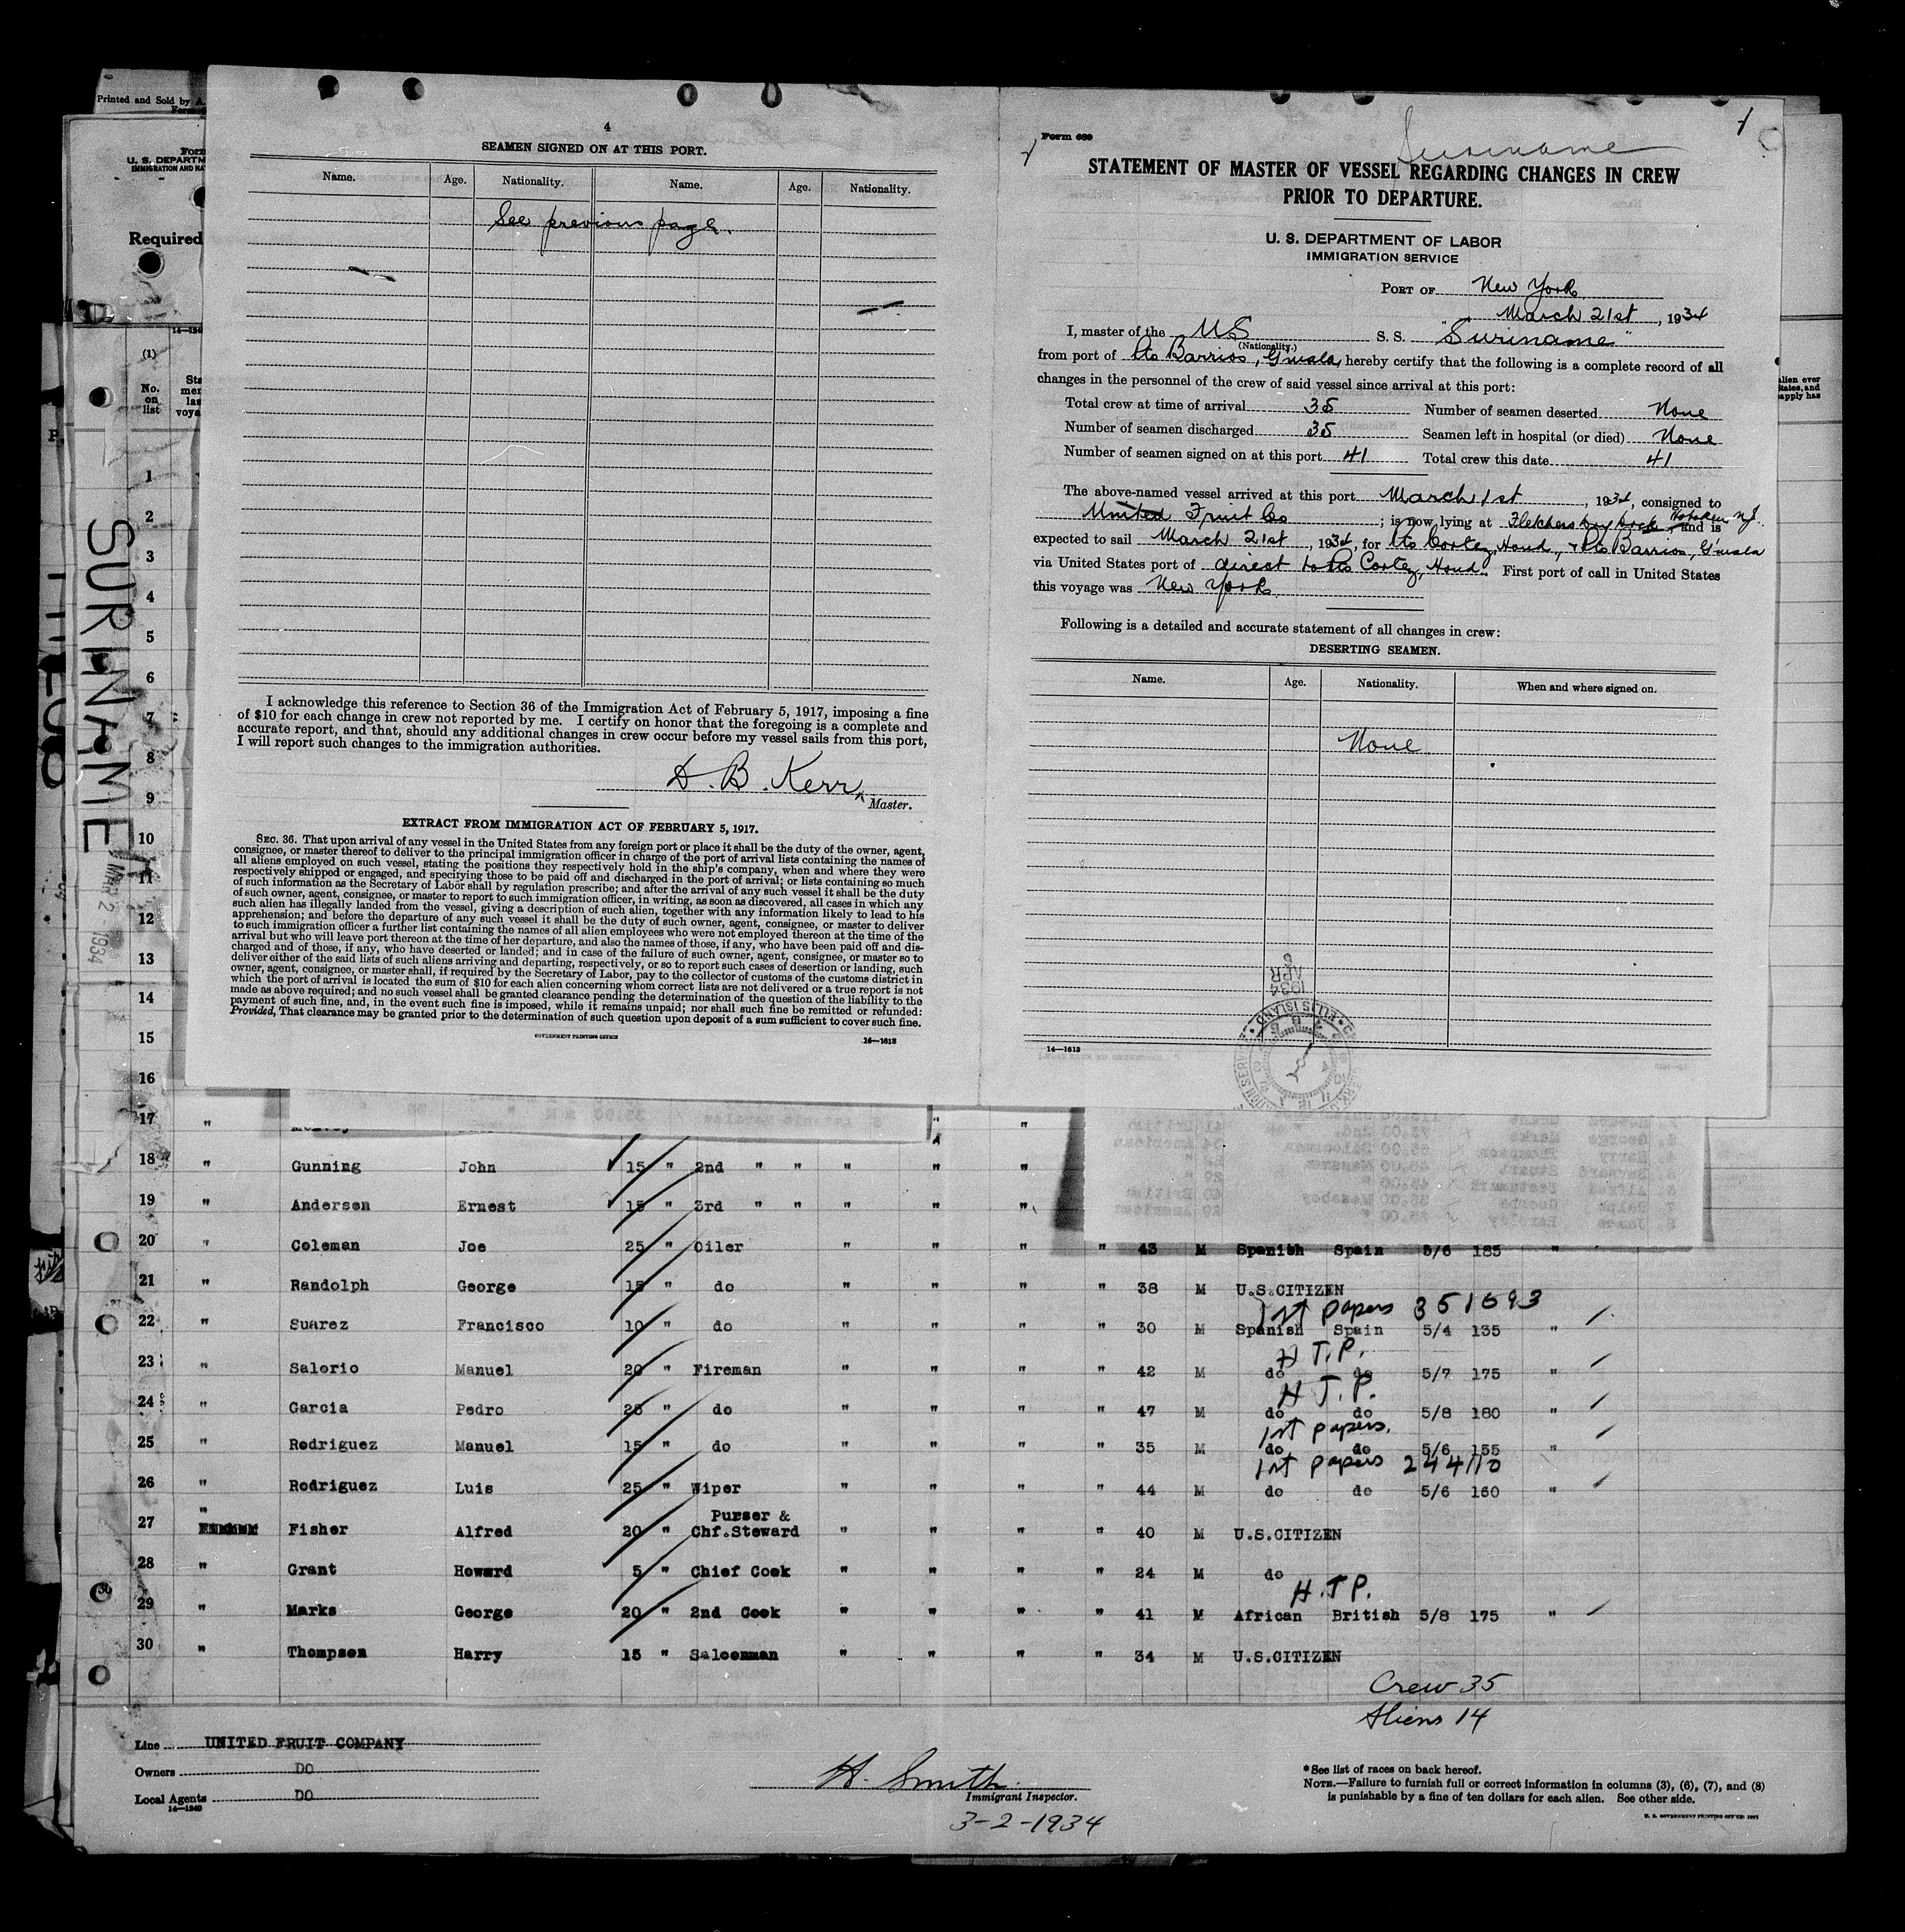 Printed and Sold by
Form
U. S. DEPARTM
IMMIGRATION AND NA
Required
(1)
No. on list
4
SEAMEN SIGNED ON AT THIS PORT.
Name. Age. Nationality. Name. Age. Nationality.
See previous page.
I acknowledge this reference to Section 36 of the Immigration Act of February 5, 1917, imposing a fine
of $10 for each change in crew not reported by me. I certify on honor that the foregoing is a complete and
accurate report, and that, should any additional changes in crew occur before my vessel sails from this port,
I will report such changes to the immigration authorities.
D. B. Kerr
Master.
EXTRACT FROM IMMIGRATION ACT OF FEBRUARY 5, 1917.
SEC. 36. That upon arrival of any vessel in the United States from any foreign port or place it shall be the duty of the owner, agent,
consignee, or master thereof to deliver to the principal immigration officer in charge of the port of arrival lists containing the names of
all aliens employed on such vessel, stating the positions they respectively hold in the ship's company, when and where they were
respectively shipped or engaged, and specifying those to be paid off and discharged in the port of arrival; or lists containing so much
of such information as the Secretary of Labor shall by regulation prescribe; and after the arrival of any such vessel it shall be the duty
of such owner, agent, consignee, or master to report to such immigration officer, in writing, as soon as discovered, all cases in which any
such alien has illegally landed from the vessel, giving a description of such alien, together with any information likely to lead to his
apprehension; and before the departure of any such vessel it shall be the duty of such owner, agent, consignee, or master to deliver
to such immigration officer a further list containing the names of all alien employees who were not employed thereon at the time of the
arrival but who will leave port thereon at the time of her departure, and also the names of those, if any, who have been paid off and dis-
charged and of those, if any, who have deserted or landed; and in case of the failure of such owner, agent, consignee, or master so to
deliver either of the said lists of such aliens arriving and departing, respectively, or so to report such cases of desertion or landing, such
owner, agent, consignee, or master shall, if required by the Secretary of Labor, pay to the collector of customs of the customs district in
which the port of arrival is located the sum of $10 for each alien concerning whom correct lists are not delivered or a true report is not
made as above required; and no such vessel shall be granted clearance pending the determination of the question of the liability to the
payment of such fine, and, in the event such fine is imposed, while it remains unpaid; nor shall such fine be remitted or refunded:
Provided, That clearance may be granted prior to the determination of such question upon deposit of a sum sufficient to cover such fine.
GOVERNMENT PRINTING OFFICE 14—1613
Form 689
Suriname
1
STATEMENT OF MASTER OF VESSEL REGARDING CHANGES IN CREW
PRIOR TO DEPARTURE.
U. S. DEPARTMENT OF LABOR
IMMIGRATION SERVICE
PORT OF New York
March 21st, 1934
I, master of the US S. S. "Suriname"
(Nationality.)
from port of Pto Barrios, G'mala, hereby certify that the following is a complete record of all
changes in the personnel of the crew of said vessel since arrival at this port:
Total crew at time of arrival 35 Number of seamen deserted None
Number of seamen discharged 35 Seamen left in hospital (or died) None
Number of seamen signed on at this port 41 Total crew this date 41
The above-named vessel arrived at this port March 1st, 1934, consigned to
United Fruit Co; is now lying at Fletchers Dry Dock Hoboken N.J. and is
expected to sail March 21st, 1934, for Pto Cortez, Hond., + Pto Barrios, G'mala
via United States port of direct to Pto Cortez, Hond. First port of call in United States
this voyage was New York
Following is a detailed and accurate statement of all changes in crew:
DESERTING SEAMEN.
Name. Age. Nationality. When and where signed on.
None
1934 APR
ELLIS ISLAND
14—1613
SURINAME
MAR 2 1934
1
2
3
4
5
6
7
8
9
10
11
12
13
14
15
16
17 " " "
18 " Gunning John 15 " 2nd " " " " "
19 " Andersen Ernest 15 " 3rd " " " " "
20 " Coleman Joe 25 " Oiler " " " " 43 M Spanish Spain 5/6 185 "
21 " Randolph George 15 " do " " " " 38 M U.S.CITIZEN
1st papers 351693
22 " Suarez Francisco 10 " do " " " " 30 M Spanish Spain 5/4 135 "
H T.P.
23 " Salorio Manuel 20 " Fireman " " " " 42 M do do 5/7 175 "
H T.P.
24 " Garcia Pedro 25 " do " " " " 47 M do do 5/8 180 "
1st papers.
25 " Rodriguez Manuel 15 " do " " " " 35 M do do 5/6 155 "
1st papers 244110
26 " Rodriguez Luis 25 " Wiper " " " " 44 M do do 5/6 160 "
27 " Fisher Alfred 20 " Purser & Chf.Steward " " " " 40 M U.S.CITIZEN
28 " Grant Howard 5 " Chief Cook " " " " 24 M do
H.T.P.
29 " Marks George 20 " 2nd Cook " " " " 41 M African British 5/8 175 "
30 " Thompson Harry 15 " Saloonman " " " " 34 M U.S.CITIZEN
Crew 35
Aliens 14
Line UNITED FRUIT COMPANY
Owners DO
Local Agents DO
14—1240
H. Smith
Immigrant Inspector.
3-2-1934
*See list of races on back hereof.
NOTE.—Failure to furnish full or correct information in columns (3), (6), (7), and (8)
is punishable by a fine of ten dollars for each alien. See other side.